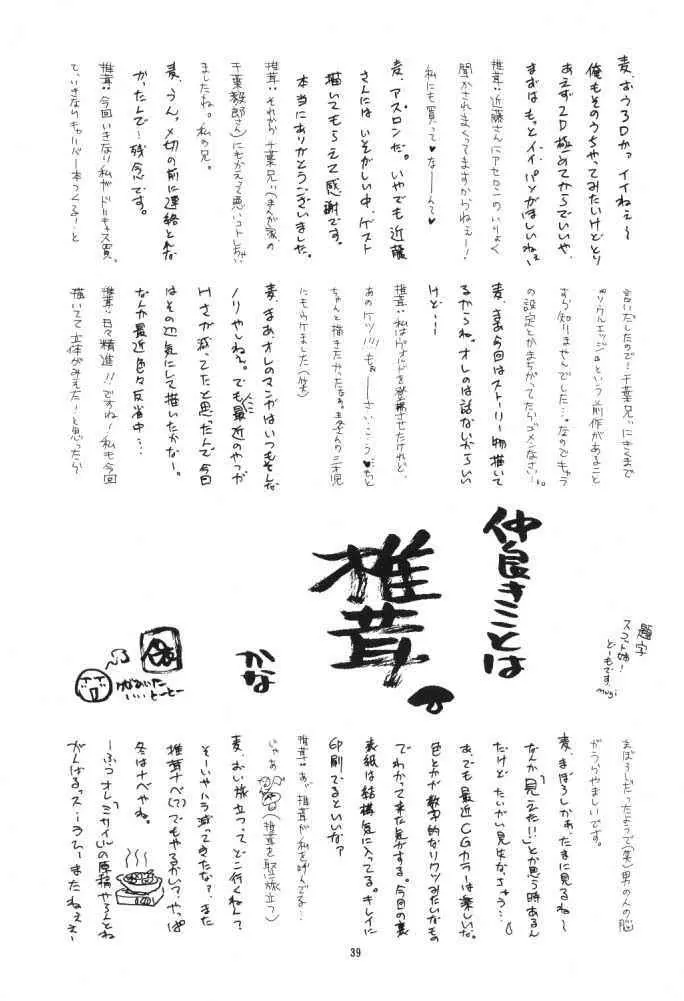 麦、おう3Dかっ イイねぇ〜
俺もそのうちやってみたいけどとり
あえず2D極めてからでいいや、
まずは もっとイイパソがほしいねぇ
椎茸:近藤さんにアセロンのいりょく
聞かされまくってますからねぇー!
私にも買って♥なーんて♥
麦、アスロンだ。いやでも近藤
さんには いそがしい中、ゲスト
描いてもらえて感謝です。
本当にありがとうございました。
椎茸:それから 千葉兄ぃ(まんが家の
千葉毅郎さん)にもかえて悪いコトしちゃい
ましたね。私の兄。
麦、うん、〆切の前に連絡とれな
かったんでー残念です。
椎茸:今回いきなり私がドリキャス買っ
て、いきなりキャリバー本つくる!と
言いだしたので…千葉兄ぃにきくまで
『ソウルエッジ』という前作があること
すら知りませんでした…。なのでキャラ
の設定とかまちがってたらゴメンなさい…。
麦、まあ今回はストーリー物描いて
るからね。オレのは話ないからいい
けど…
椎茸:私はヴォルドを登場させたけれど、
あのケツ!!!もぉーさいこう…♥もっと
ちゃんと描きたかったなぁ。
にもウケました(笑)
麦、まあ、オレのマンガはいつもそんな
ノリやしねぇ。でも最近のやつが
Hさが減ってたと思ったんで今回
はその辺気にして描いたかなー。
なんか最近色々反省中…
椎茸:日々精進!!ですね!私も今回
描いてて立体がみえた!と思ったら
仲良きことは
椎茸。
かな
題字
スコット姉!
どーもです。
mugi
まぼろしだったようで(笑)男の人の脳
がうらやましいです。
麦、まぼろしかぁ、たまに見るね〜
なんか「見えた!!」とか思う時あるん
だけど たいがい見失なっちゃう…
あ、でも最近CGカラーは楽しい。
色とかが数字的なリクツみたいなもの
でわかって来た気がする。今回の裏
表紙は結構気に入ってる。キレイに
印刷でるといいな?
椎茸:あっ、椎茸が私を呼んでる…
じゃあ (椎茸を堅に旅立つ)
麦、おい旅立つって どこ行くねん?
そーいやハラ減ってきたな?、また
椎茸ナベ(?)でもやるかい?やっぱ
冬はナベやね。
ーふっ オレ「ミサイル」の原稿やらんとね
がんばるっスーうひーまたねぇえ〜
39